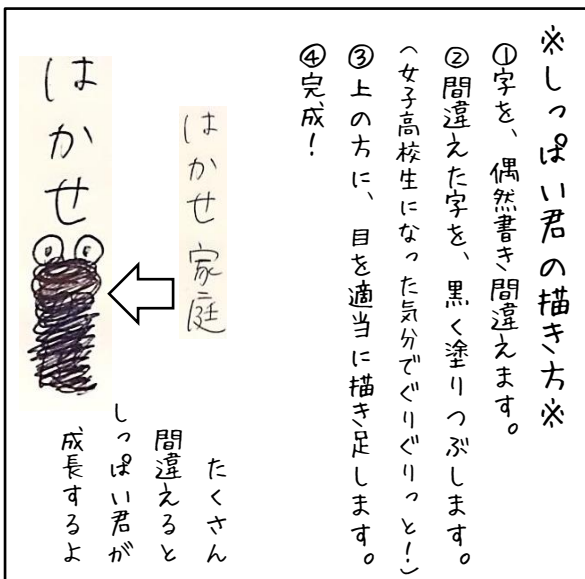 ※しっぱい君の描き方※
①字を、偶然書き間違えます。
②間違えた字を、黒く塗りつぶします。
（女子高校生になった気分でぐりぐりっと！）
③上の方に、目を適当に描き足します。
④完成！
はかせ家庭
はかせ
たくさん
間違えると
しっぱい君が
成長するよ